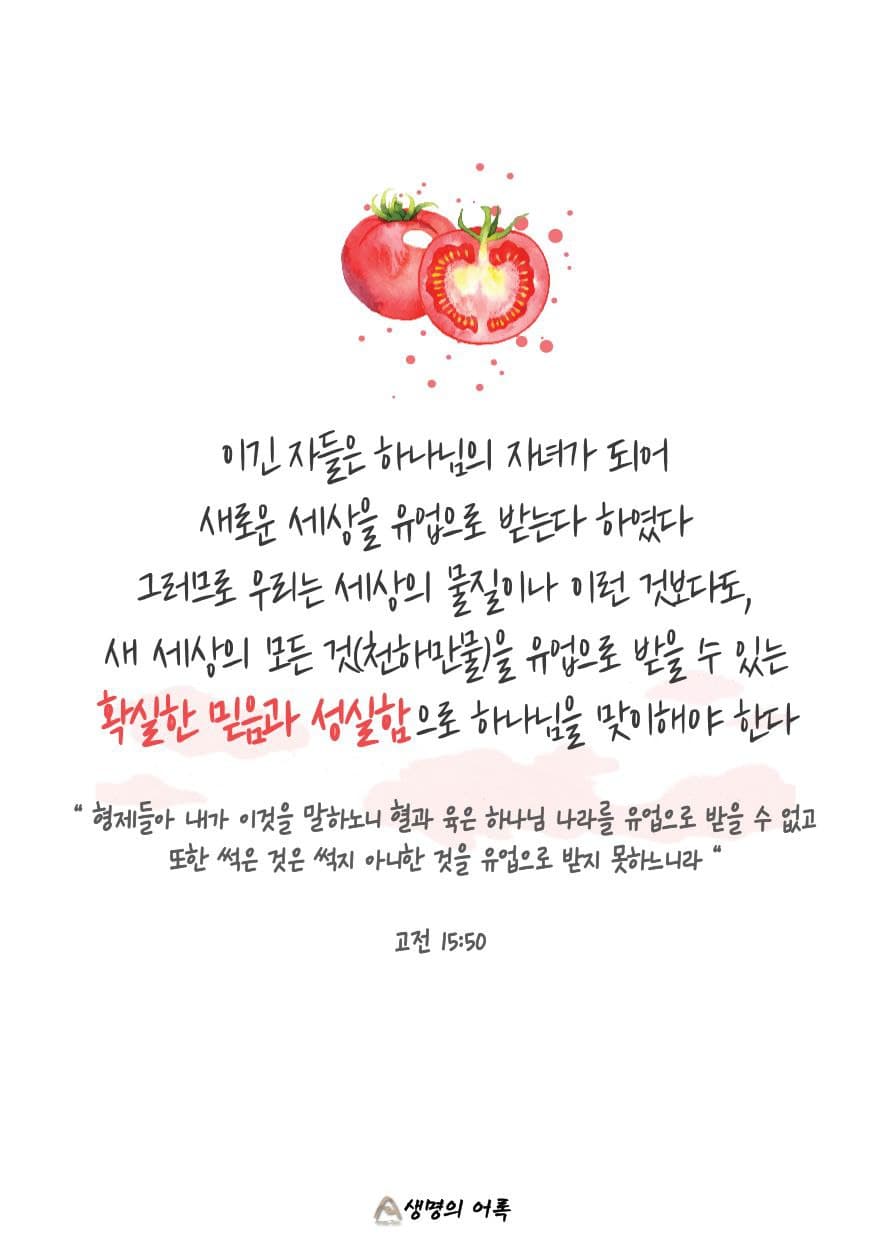 이긴 자들은 하나님의 자녀가 되어
새로운 세상을 유업으로 받는다 하였다
그러므로 우리는 세상의 물질이나 이런 것보다도,
새 세상의 모든 것(천하만물)을 유업으로 받을 수 있는
확실한 믿음과 성실함으로 하나님을 맞이해야 한다
“ 형제들아 내가 이것을 말하노니 혈과 육은 하나님 나라를 유업으로 받을 수 없고
또한 썩은 것은 썩지 아니한 것을 유업으로 받지 못하느니라 “
고전 15:50
생명의 어록